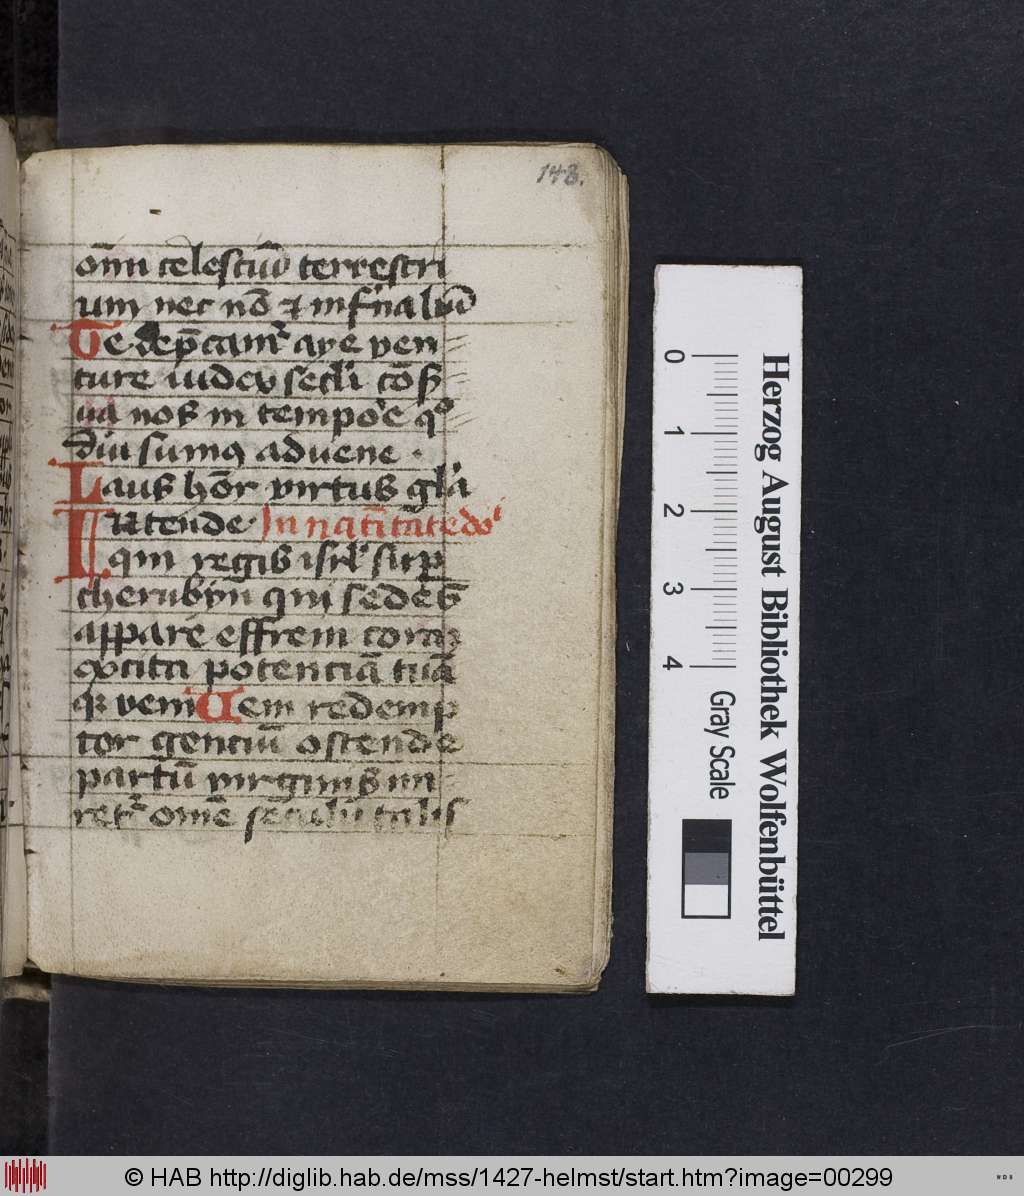 148.
om̄i celestiū terrestri
um nec nō ⁊ inf'naliū
Te dep̄camr̄ aye ven
ture iudex secli cōs
ua nos in tempore qͦ
diu sumꝰ advene .
Laus hōr virtus glā
Intende In natītate doⁱ
qui regis isrl' sup
cherubyn qui sedes
appare effrem corā
excita potenciā tuā
qꝫ veni Uem redemp
tor genciū ostende
partū virginis mi
retr̄ om̄e sēculū talis
0 1 2 3 4
Gray Scale
Herzog August Bibliothek Wolfenbüttel
© HAB http://diglib.hab.de/mss/1427-helmst/start.htm?image=00299